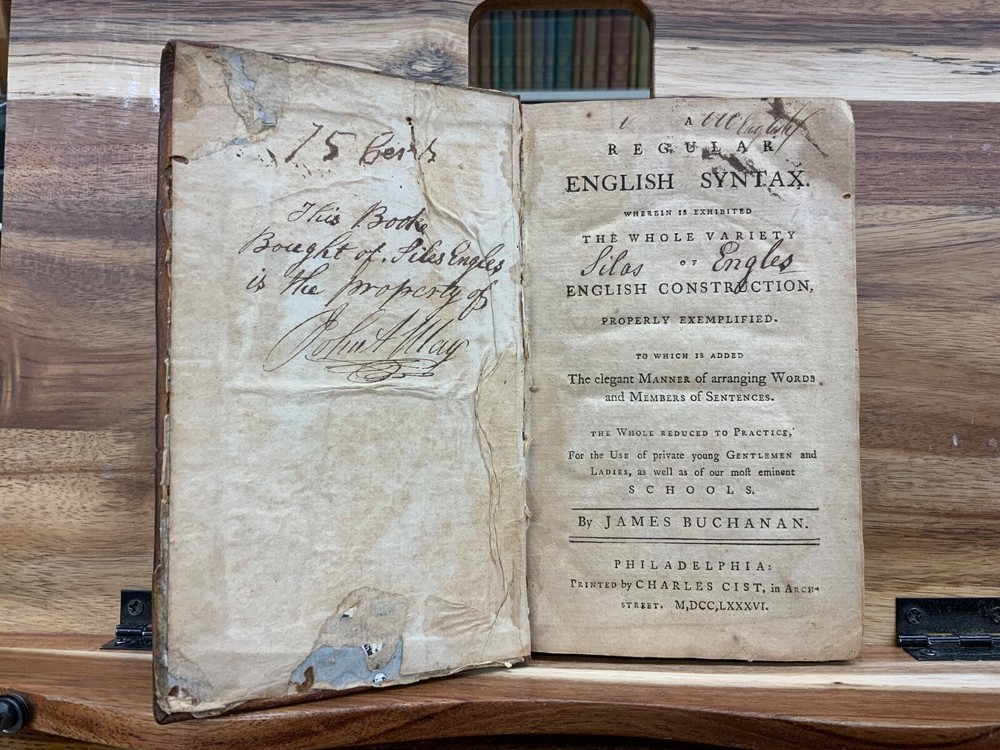 75 Cents
This Book
Bought of Siles Engles
is the property of
Robert May
A
REGULAR
ENGLISH SYNTAX.
WHEREIN IS EXHIBITED
THE WHOLE VARIETY
OF
Silas Engles
ENGLISH CONSTRUCTION,
PROPERLY EXEMPLIFIED.
TO WHICH IS ADDED
The elegant MANNER of arranging WORDS
and MEMBERS of SENTENCES.
THE WHOLE REDUCED TO PRACTICE,
For the USE of private young GENTLEMEN and
LADIES, as well as of our moſt eminent
SCHOOLS.
By JAMES BUCHANAN.
PHILADELPHIA:
PRINTED by CHARLES CIST, in ARCH-
STREET. M,DCC,LXXXVI.